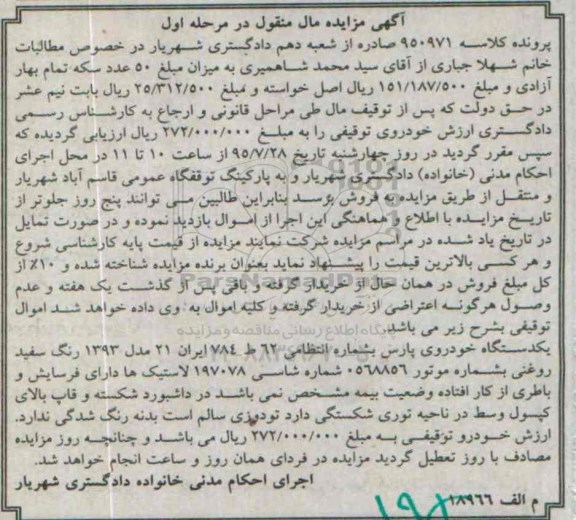 آگهی مزایده مال منقول در مرحله اول
پرونده کلاسه ۹۵۰۹۷۱ صادره از شعبه دهم دادگستری شهریار در خصوص مطالبات
خانم شهلا جباری از آقای سید محمد شاهمیری به میزان مبلغ ۵۰ عدد سکه تمام بهار
آزادی و مبلغ ۱۵۱/۱۸۷/۵۰۰ ریال اصل خواسته و مبلغ ۲۵/۳۱۲/۵۰۰ ریال بابت نیم عشر
در حق دولت که پس از توقیف مال طی مراحل قانونی و ارجاع به کارشناس رسمی
دادگستری ارزش خودروی توقیفی را به مبلغ ۲۷۲/۰۰۰/۰۰۰ ریال ارزیابی گردیده که
سپس مقرر گردید در روز چهارشنبه تاریخ ۹۵/۷/۲۸ از ساعت ۱۰ تا ۱۱ در محل اجرای
احکام مدنی (خانواده) دادگستری شهریار و به پارکینگ توقفگاه عمومی قاسم آباد شهریار
و منتقل از طریق مزایده به فروش برسد بنابراین طالبین می توانند پنج روز جلوتر از
تاریخ مزایده با اطلاع و هماهنگی این اجرا از اموال بازدید نموده و در صورت تمایل
در تاریخ یاد شده در مراسم مزایده شرکت نمایند مزایده از قیمت پایه کارشناسی شروع
و هر کسی بالاترین قیمت را پیشنهاد نماید بعنوان برنده مزایده شناخته شده و ۱۰٪ از
کل مبلغ فروش در همان حال از خریدار گرفته و باقی پس از گذشت یک هفته و عدم
وصول هرگونه اعتراضی از خریدار گرفته و کلیه اموال به وی داده خواهد شد اموال
توقیفی بشرح زیر می باشد.
پایگاه اطلاع رسانی مناقصه و مزایده
یکدستگاه خودروی پارس بشماره انتظامی ۶۲ ط ۷۸۴ ایران ۲۱ مدل ۱۳۹۳ رنگ سفید
روغنی بشماره موتور ۰۵۶۸۸۵۶ شماره شاسی ۱۹۷۰۷۸ لاستیک ها دارای فرسایش و
باطری از کار افتاده وضعیت بیمه مشخص نمی باشد در داشبورد شکسته و قاب بالای
کپسول وسط در ناحیه توری شکستگی دارد تودوزی سالم است بدنه رنگ شدگی ندارد.
ارزش خودرو توقیفی به مبلغ ۲۷۲/۰۰۰/۰۰۰ ریال می باشد و چنانچه روز مزایده
مصادف با روز تعطیل گردید مزایده در فردای همان روز و ساعت انجام خواهد شد.
اجرای احکام مدنی خانواده دادگستری شهریار
م الف ۱۸۹۶۶